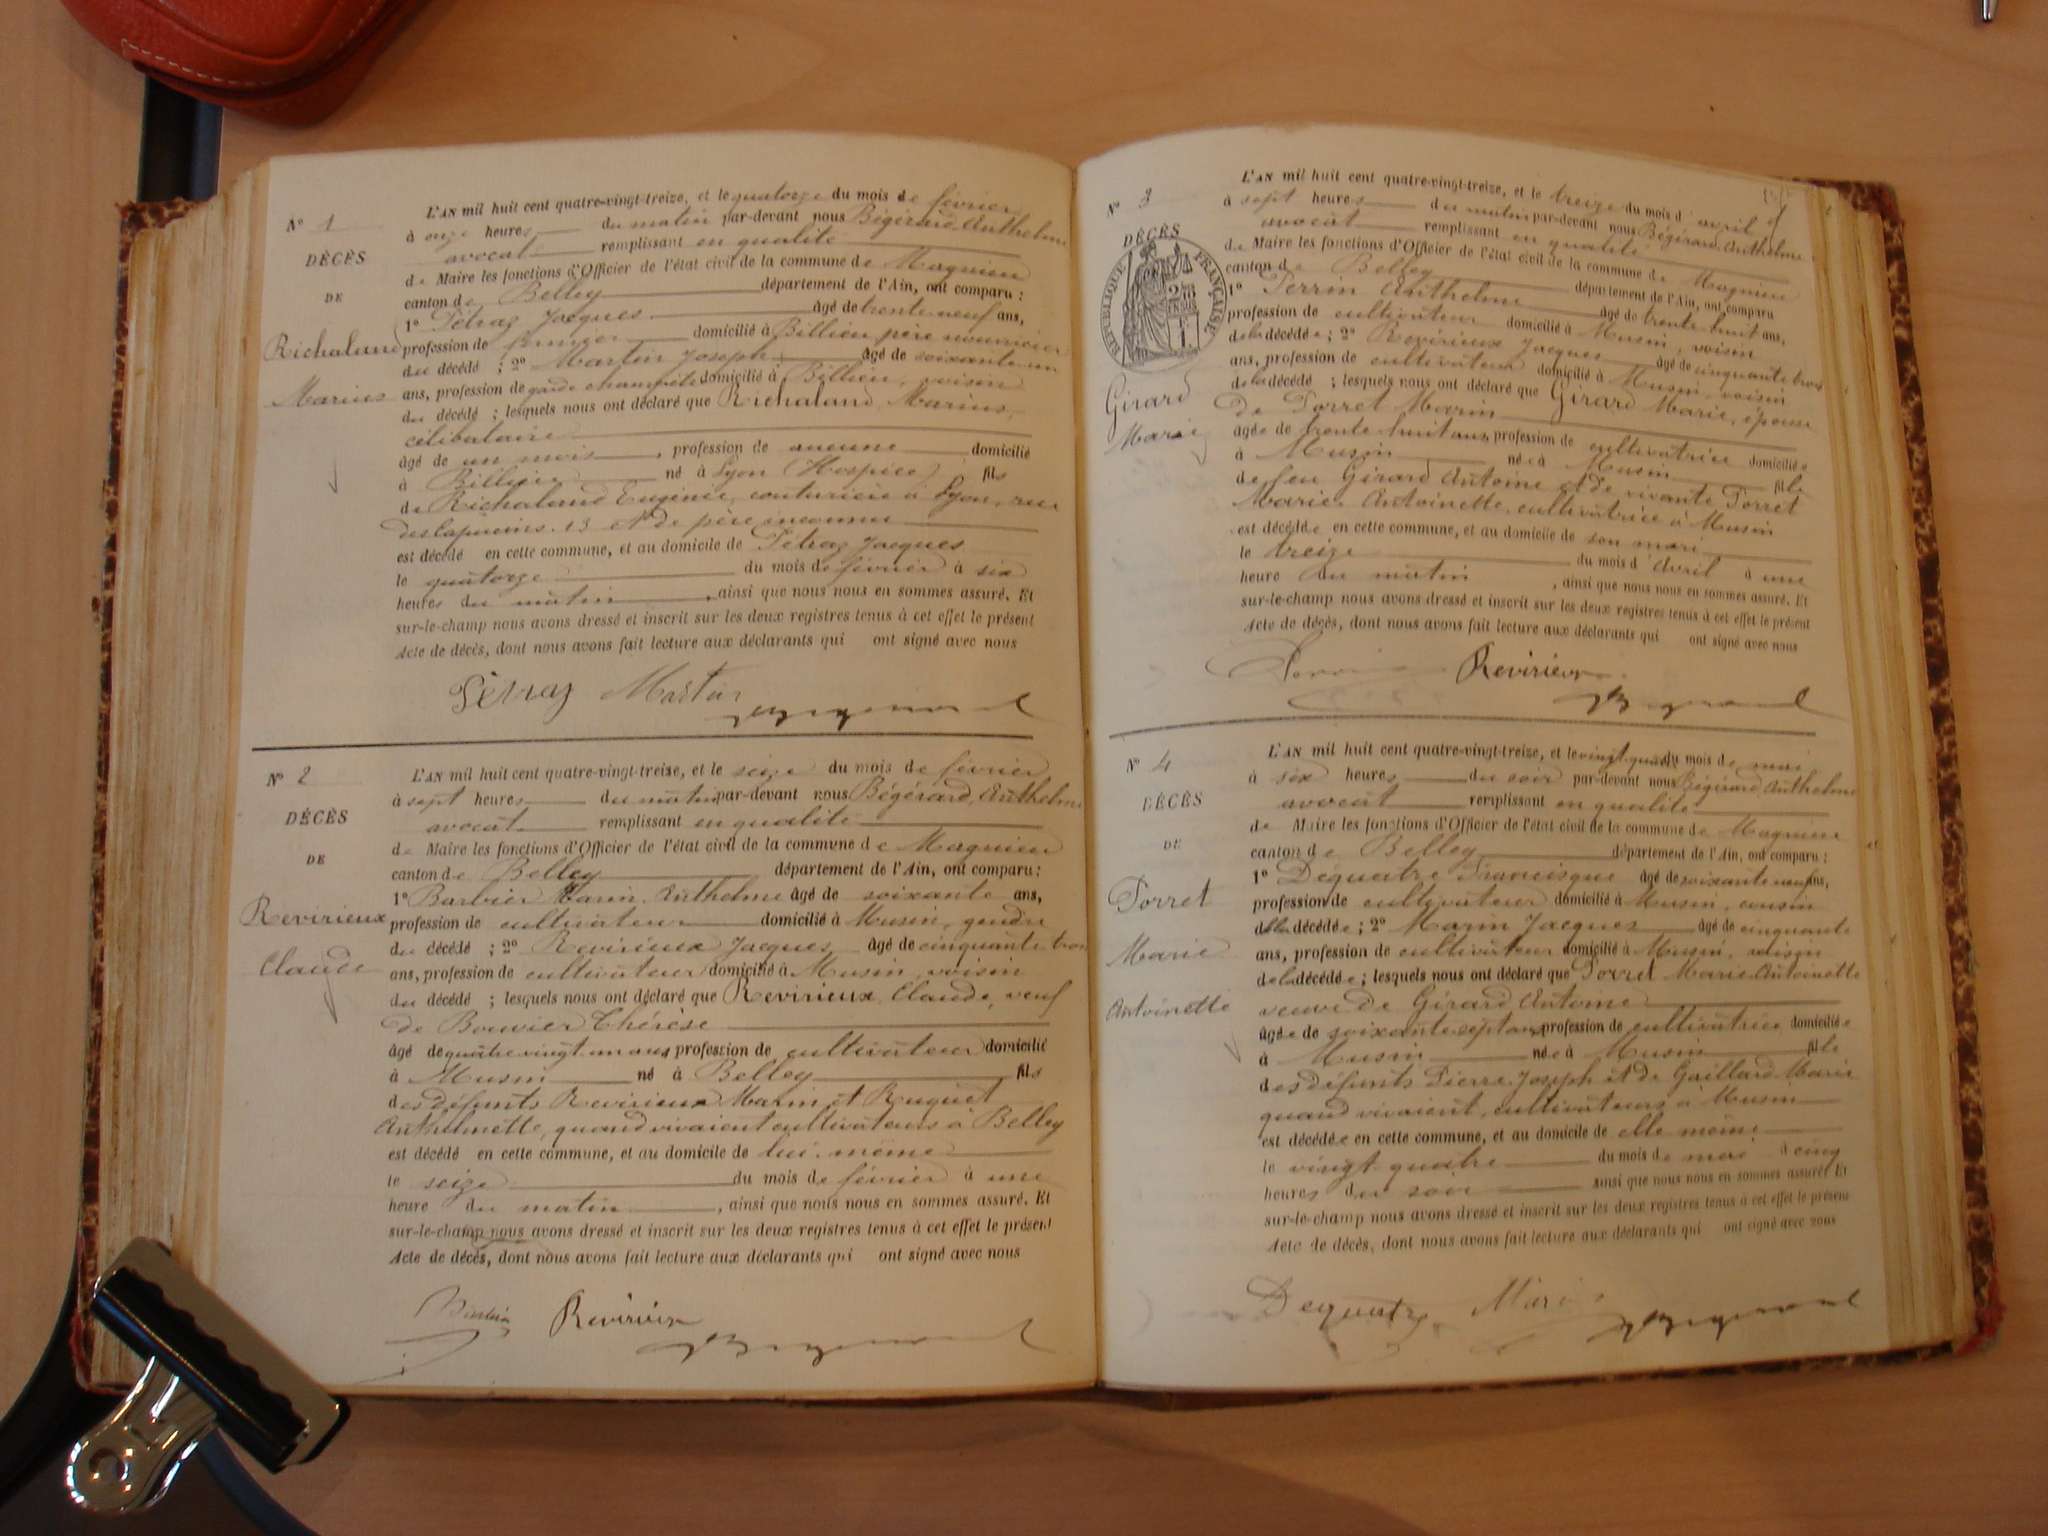 N° 1
DÉCÈS
DE
Richaland
Marius
L'AN mil huit cent quatre-vingt-treize, et le quatorze du mois de février
à onze heures du matin par-devant nous Bégérard, Anthelme
avocat remplissant en qualité
de Maire les fonctions d'Officier de l'état civil de la commune de Magnieu
canton de Belley département de l'Ain, ont comparu :
1° Pétraz Jacques âgé de trente neuf ans,
profession de fermier domicilié à Billieu, père nourricier
du décédé ; 2° Martin Joseph âgé de soixante un
ans, profession de garde champêtre domicilié à Billieu, voisin
du décédé ; lesquels nous ont déclaré que Richaland, Marius,
célibataire
âgé de un mois, profession de aucune domicilié
à Billieu né à Lyon (Hospice) fils
de Richaland Eugénie, couturière à Lyon, rue
des Capucins. 13 et de père inconnu
est décédé en cette commune, et au domicile de Pétraz Jacques
le quatorze du mois de février à six
heures du matin, ainsi que nous nous en sommes assuré. Et
sur-le-champ nous avons dressé et inscrit sur les deux registres tenus à cet effet le présent
Acte de décès, dont nous avons fait lecture aux déclarants qui ont signé avec nous
Pétraz Martin
N° 2
DÉCÈS
DE
Revirieux
Claude
L'AN mil huit cent quatre-vingt-treize, et le seize du mois de février
à sept heures du matin par-devant nous Bégérard, Anthelme
avocat remplissant en qualité
de Maire les fonctions d'Officier de l'état civil de la commune de Magnieu
canton de Belley département de l'Ain, ont comparu :
1° Barbier Marin Anthelme âgé de soixante ans,
profession de cultivateur domicilié à Musin, gendre
du décédé ; 2° Revirieux Jacques âgé de cinquante trois
ans, profession de cultivateur domicilié à Musin, voisin
du décédé ; lesquels nous ont déclaré que Revirieux, Claude, veuf
de Bouvier Thérèse
âgé de quatre vingt un ans profession de cultivateur domicilié
à Musin né à Belley fils
des défunts Revirieux Marin et Ruquet
Anthelmette, quand vivaient cultivateurs à Belley
est décédé en cette commune, et au domicile de lui-même
le seize du mois de février à une
heure du matin, ainsi que nous nous en sommes assuré. Et
sur-le-champ nous avons dressé et inscrit sur les deux registres tenus à cet effet le présent
Acte de décès, dont nous avons fait lecture aux déclarants qui ont signé avec nous
Revirieux
N° 3
DÉCÈS
RÉPUBLIQUE FRANÇAISE
Girard
Marie
L'AN mil huit cent quatre-vingt-treize, et le treize du mois d'avril
à sept heures du matin par-devant nous Bégérard, Anthelme
avocat remplissant en qualité
de Maire les fonctions d'Officier de l'état civil de la commune de Magnieu
canton de Belley département de l'Ain, ont comparu
1° Perrin Anthelme âgé de trente huit ans,
profession de cultivateur domicilié à Musin, voisin
de la décédée ; 2° Revirieux Jacques âgé de cinquante trois
ans, profession de cultivateur domicilié à Musin, voisin
de la décédé ; lesquels nous ont déclaré que Girard Marie, épouse
de Porret Marin
âgée de trente huit ans profession de cultivatrice domiciliée
à Musin née à Musin fille
de feu Girard Antoine et de vivante Porret
Marie-Antoinette, cultivatrice à Musin
est décédée en cette commune, et au domicile de son mari
le treize du mois d'avril à une
heure du matin, ainsi que nous nous en sommes assuré. Et
sur-le-champ nous avons dressé et inscrit sur les deux registres tenus à cet effet le présent
Acte de décès, dont nous avons fait lecture aux déclarants qui ont signé avec nous
Revirieux
N° 4
DÉCÈS
DE
Porret
Marie
Antoinette
L'AN mil huit cent quatre-vingt-treize, et le vingt-quatre du mois de mai
à six heures du soir par-devant nous Bégérard Anthelme
avocat remplissant en qualité
de Maire les fonctions d'Officier de l'état civil de la commune de Magnieu
canton de Belley département de l'Ain, ont comparu :
1° Dequatre Francisque âgé de soixante neuf ans,
profession de cultivateur domicilié à Musin, cousin
de la décédée ; 2° Marin Jacques âgé de cinquante
ans, profession de cultivateur domicilié à Musin, voisin
de la décédée ; lesquels nous ont déclaré que Porret Marie-Antoinette
veuve de Girard Antoine
âgée de soixante-sept ans profession de cultivatrice domiciliée
à Musin née à Musin fille
des défunts Pierre Joseph et de Gaillard Marie
quand vivaient, cultivateurs à Musin
est décédée en cette commune, et au domicile de elle même
le vingt-quatre du mois de mai à cinq
heures du soir ainsi que nous nous en sommes assuré. Et
sur-le-champ nous avons dressé et inscrit sur les deux registres tenus à cet effet le présent
Acte de décès, dont nous avons fait lecture aux déclarants qui ont signé avec nous
Dequatre Marin